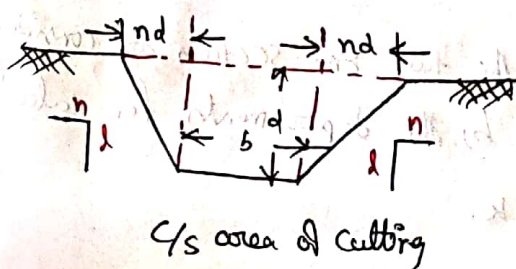 nd nd
n b d n
1 1
C/s area of cutting